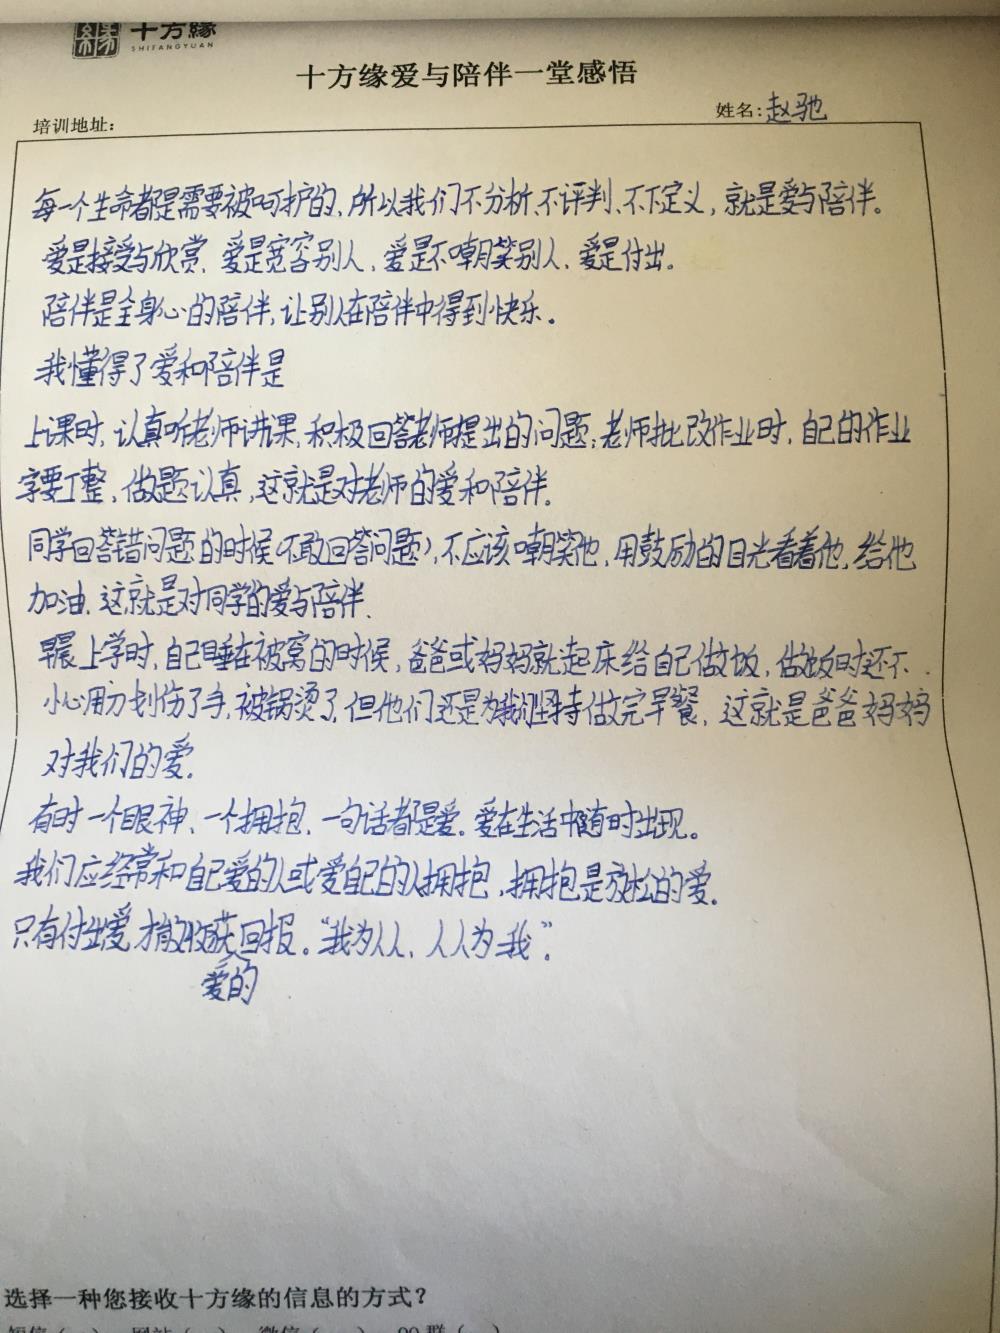 十方緣
SHIFANGYUAN
十方缘爱与陪伴一堂感悟
培训地址：
姓名：赵驰
每一个生命都是需要被呵护的、所以我们不分析、不评判、不下定义，就是爱与陪伴。
爱是接受与欣赏，爱是宽容别人，爱是不嘲笑别人，爱是付出。
陪伴是全身心的陪伴，让别人在陪伴中得到快乐。
我懂得了爱和陪伴是
上课时，认真听老师讲课，积极回答老师提出的问题；老师批改作业时，自己的作业
字要工整，做题认真，这就是对老师的爱和陪伴。
同学回答错问题的时候（不敢回答问题），不应该嘲笑他，用鼓励的目光看着他，给他
加油，这就是对同学的爱与陪伴。
早晨上学时，自己睡在被窝的时候，爸爸或妈妈就起床给自己做饭，做饭时还不
小心用刀划伤了手，被锅烫了，但他们还是为我们坚持做完早餐，这就是爸爸妈妈
对我们的爱。
有时一个眼神、一个拥抱、一句话都是爱。爱在生活中随时出现。
我们应经常和自己爱的人或爱自己的人拥抱，拥抱是放松的爱。
只有付出爱，才能收获回报。“我为人人，人人为我”。
爱的
选择一种您接收十方缘的信息的方式？